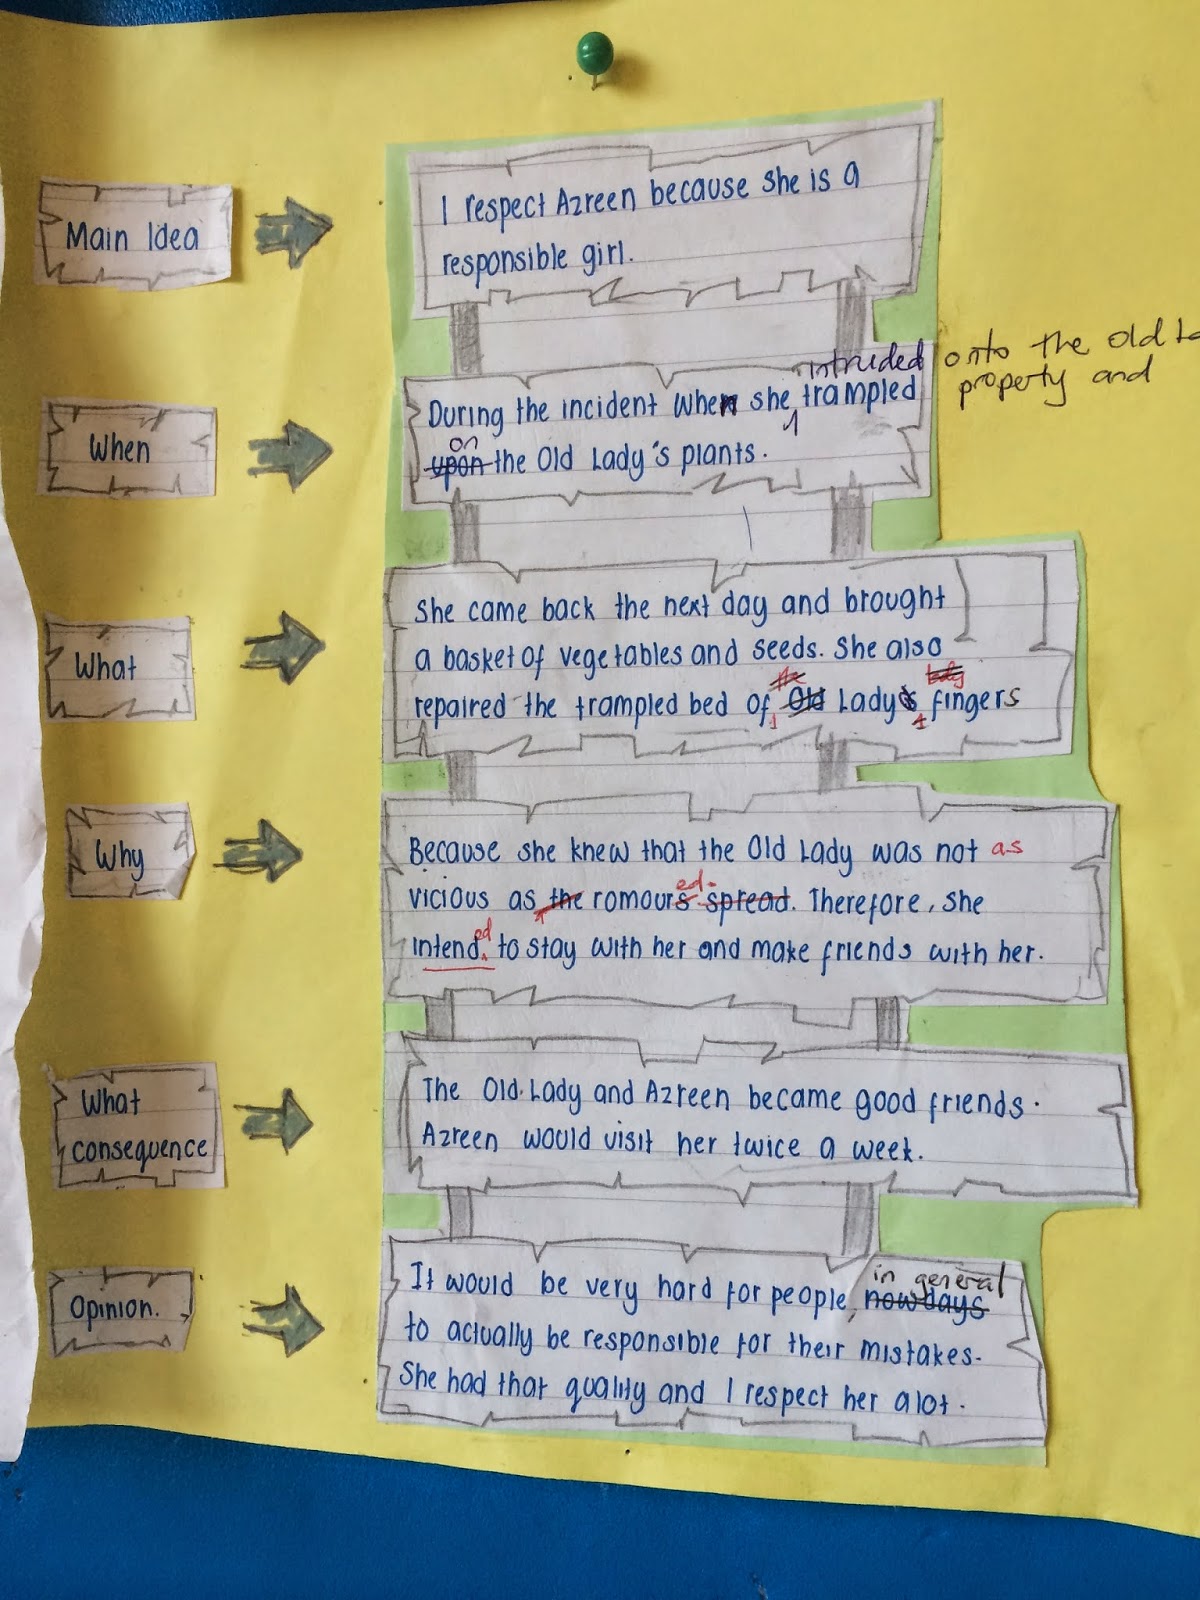 Main Idea
I respect Azreen because she is a
responsible girl.
intruded onto the Old
property and
When
During the incident when she trampled
on
upon the Old Lady's plants.
What
She came back the next day and brought
a basket of vegetables and seeds. She also
the
lady
repaired the trampled bed of Old Lady's fingers
Why
Because she knew that the Old Lady was not as
vicious as the romours spread. Therefore, she
ed.
ed
intend to stay with her and make friends with her.
What
consequence
The Old Lady and Azreen became good friends.
Azreen would visit her twice a week.
Opinion.
in general
It would be very hard for people, nowdays
to actually be responsible for their mistakes.
She had that quality and I respect her alot.